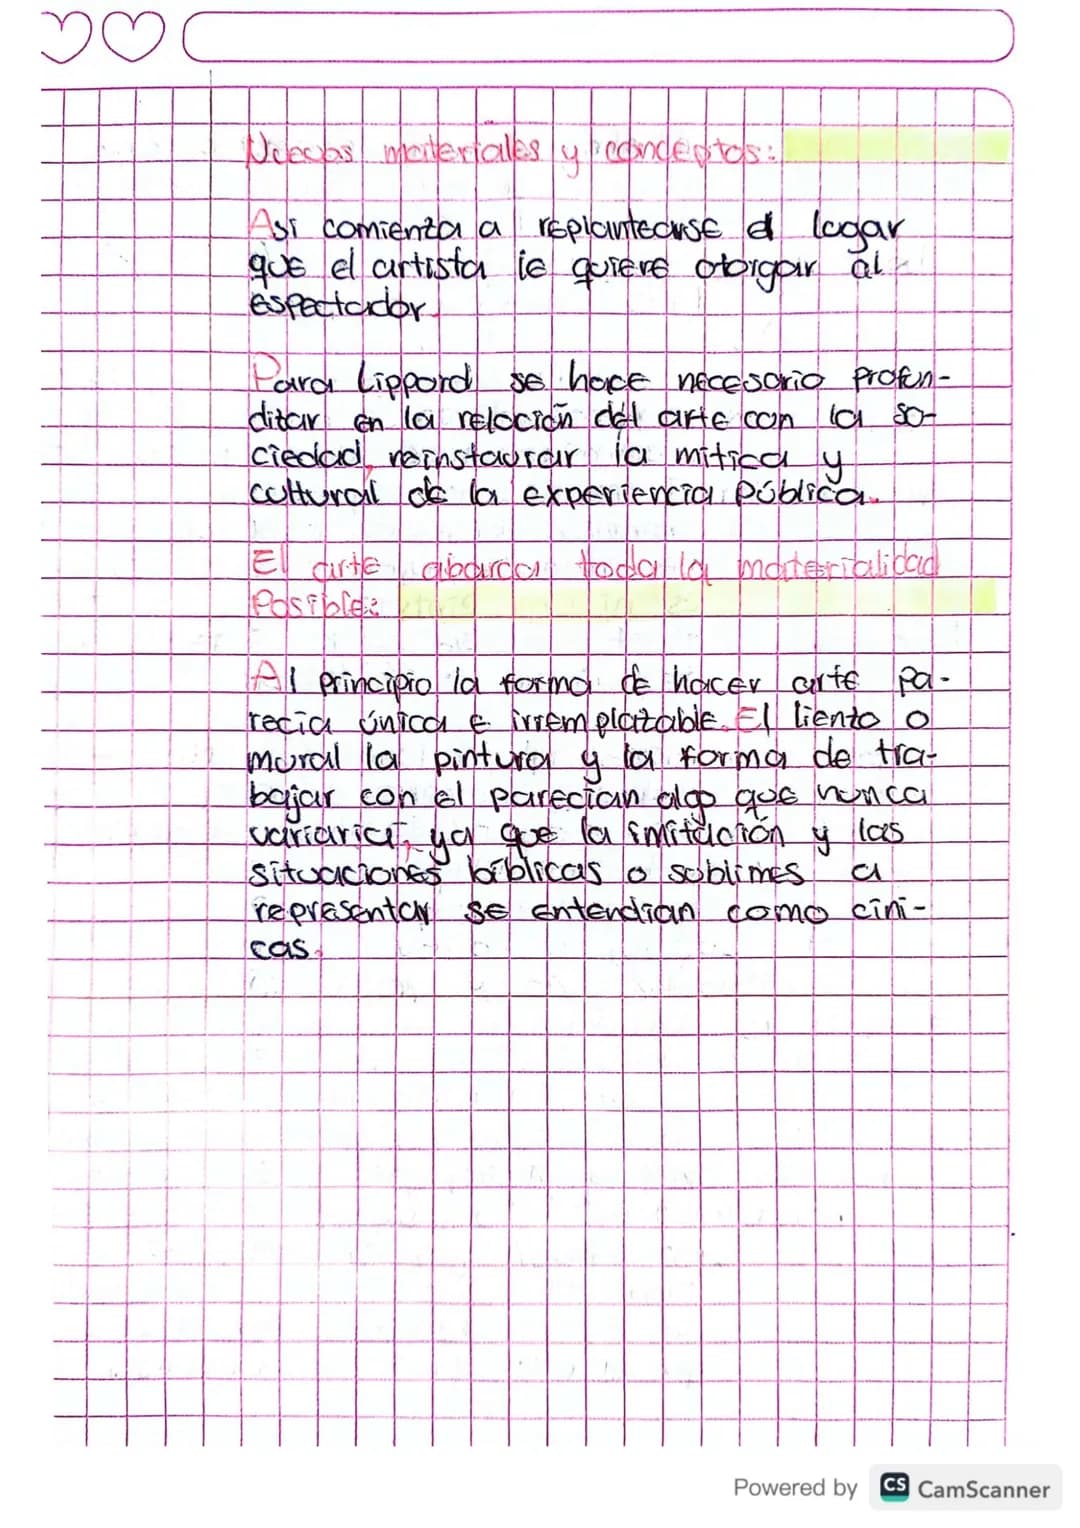 Nuevos materiales y conceptos:
Asi comienza a replantearse el lugar
que el artista le quiere otorgar al
espectador.
Para Lippord se hace necesario profun-
dizar en la relación del arte con la so-
ciedad, reinstaurar la mítica y
cultural de la experiencia pública.
El arte abarca toda la materialidad
Posible:
Al principio la forma de hacer arte pa-
recia única e irremplazable. El lienzo o
mural la pintura y la forma de tra-
bajar con el parecian algo que nunca
variaria, ya que la imitación y las
situaciones bíblicas o sublimes a
representar se entendian como cini-
cas.
Powered by CS CamScanner